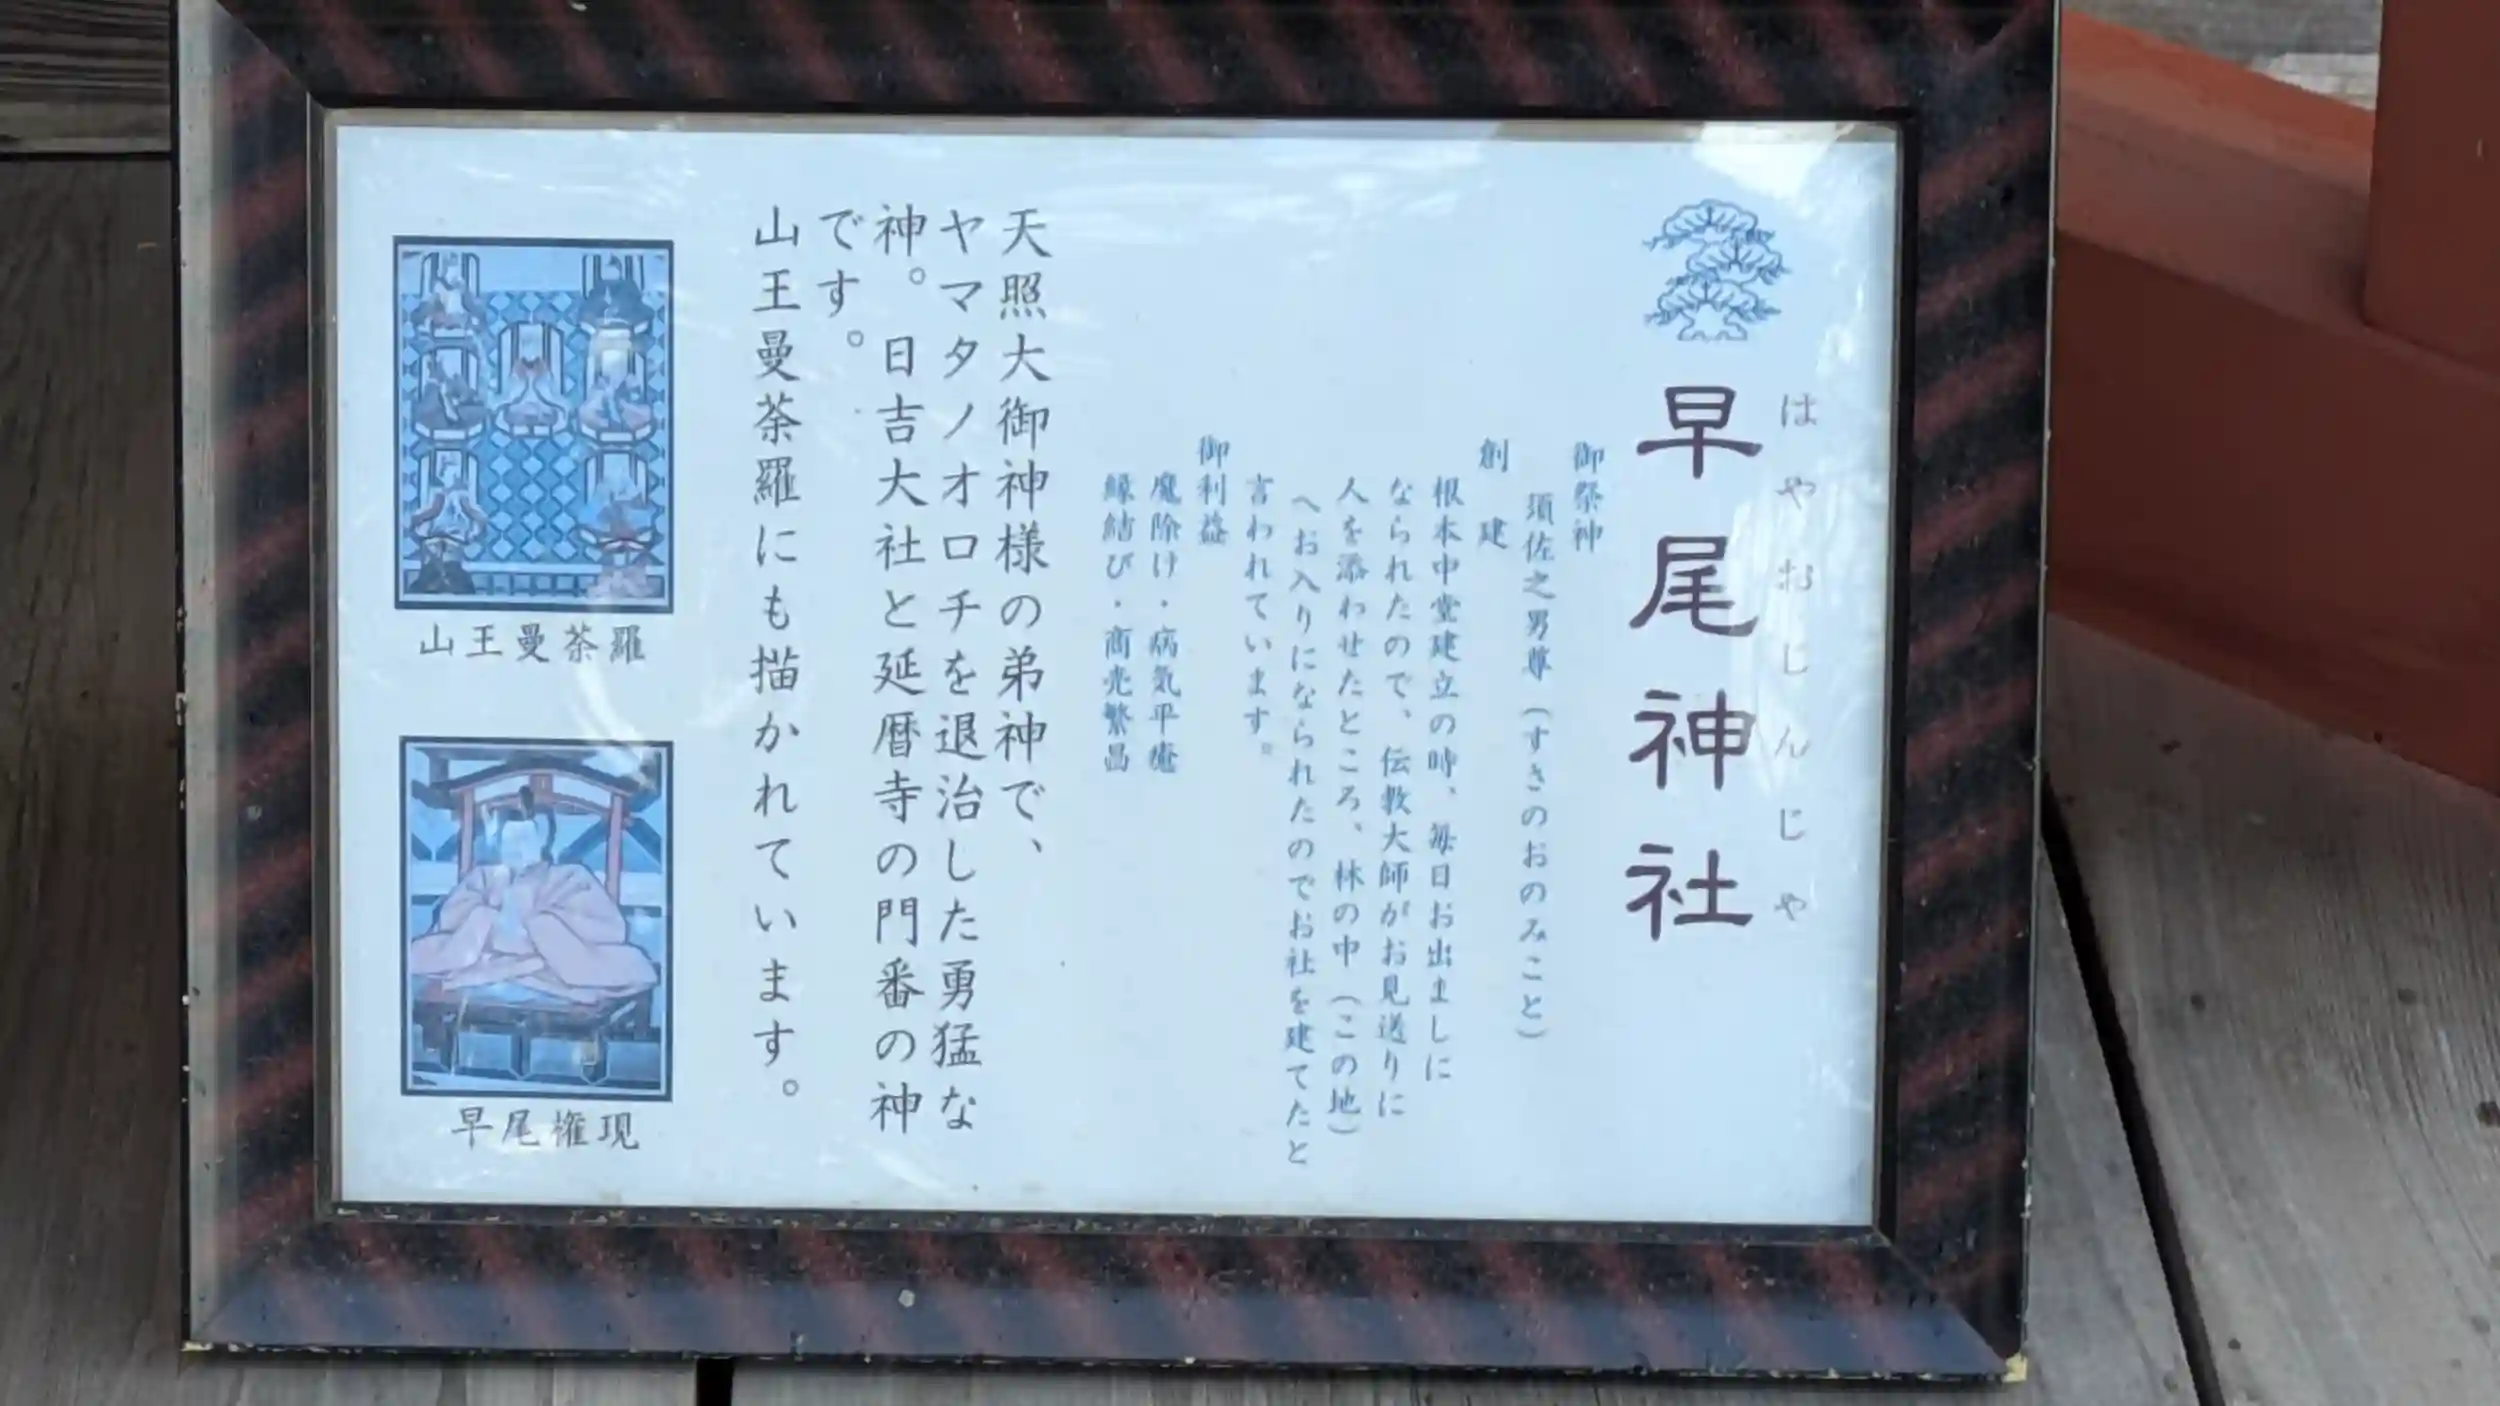 はやおじんじゃ
早尾神社
御祭神
須佐之男尊（すさのおのみこと）
創建
根本中堂建立の時、毎日お出ましに
なられたので、伝教大師がお見送りに
人を添わせたところ、林の中（この地）
へお入りになられたのでお社を建てたと
言われています。
御利益
魔除け・病気平癒
縁結び・商売繁昌
天照大御神様の弟神で、
ヤマタノオロチを退治した勇猛な
神。日吉大社と延暦寺の門番の神
です。
山王曼荼羅にも描かれています。
山王曼荼羅
早尾権現